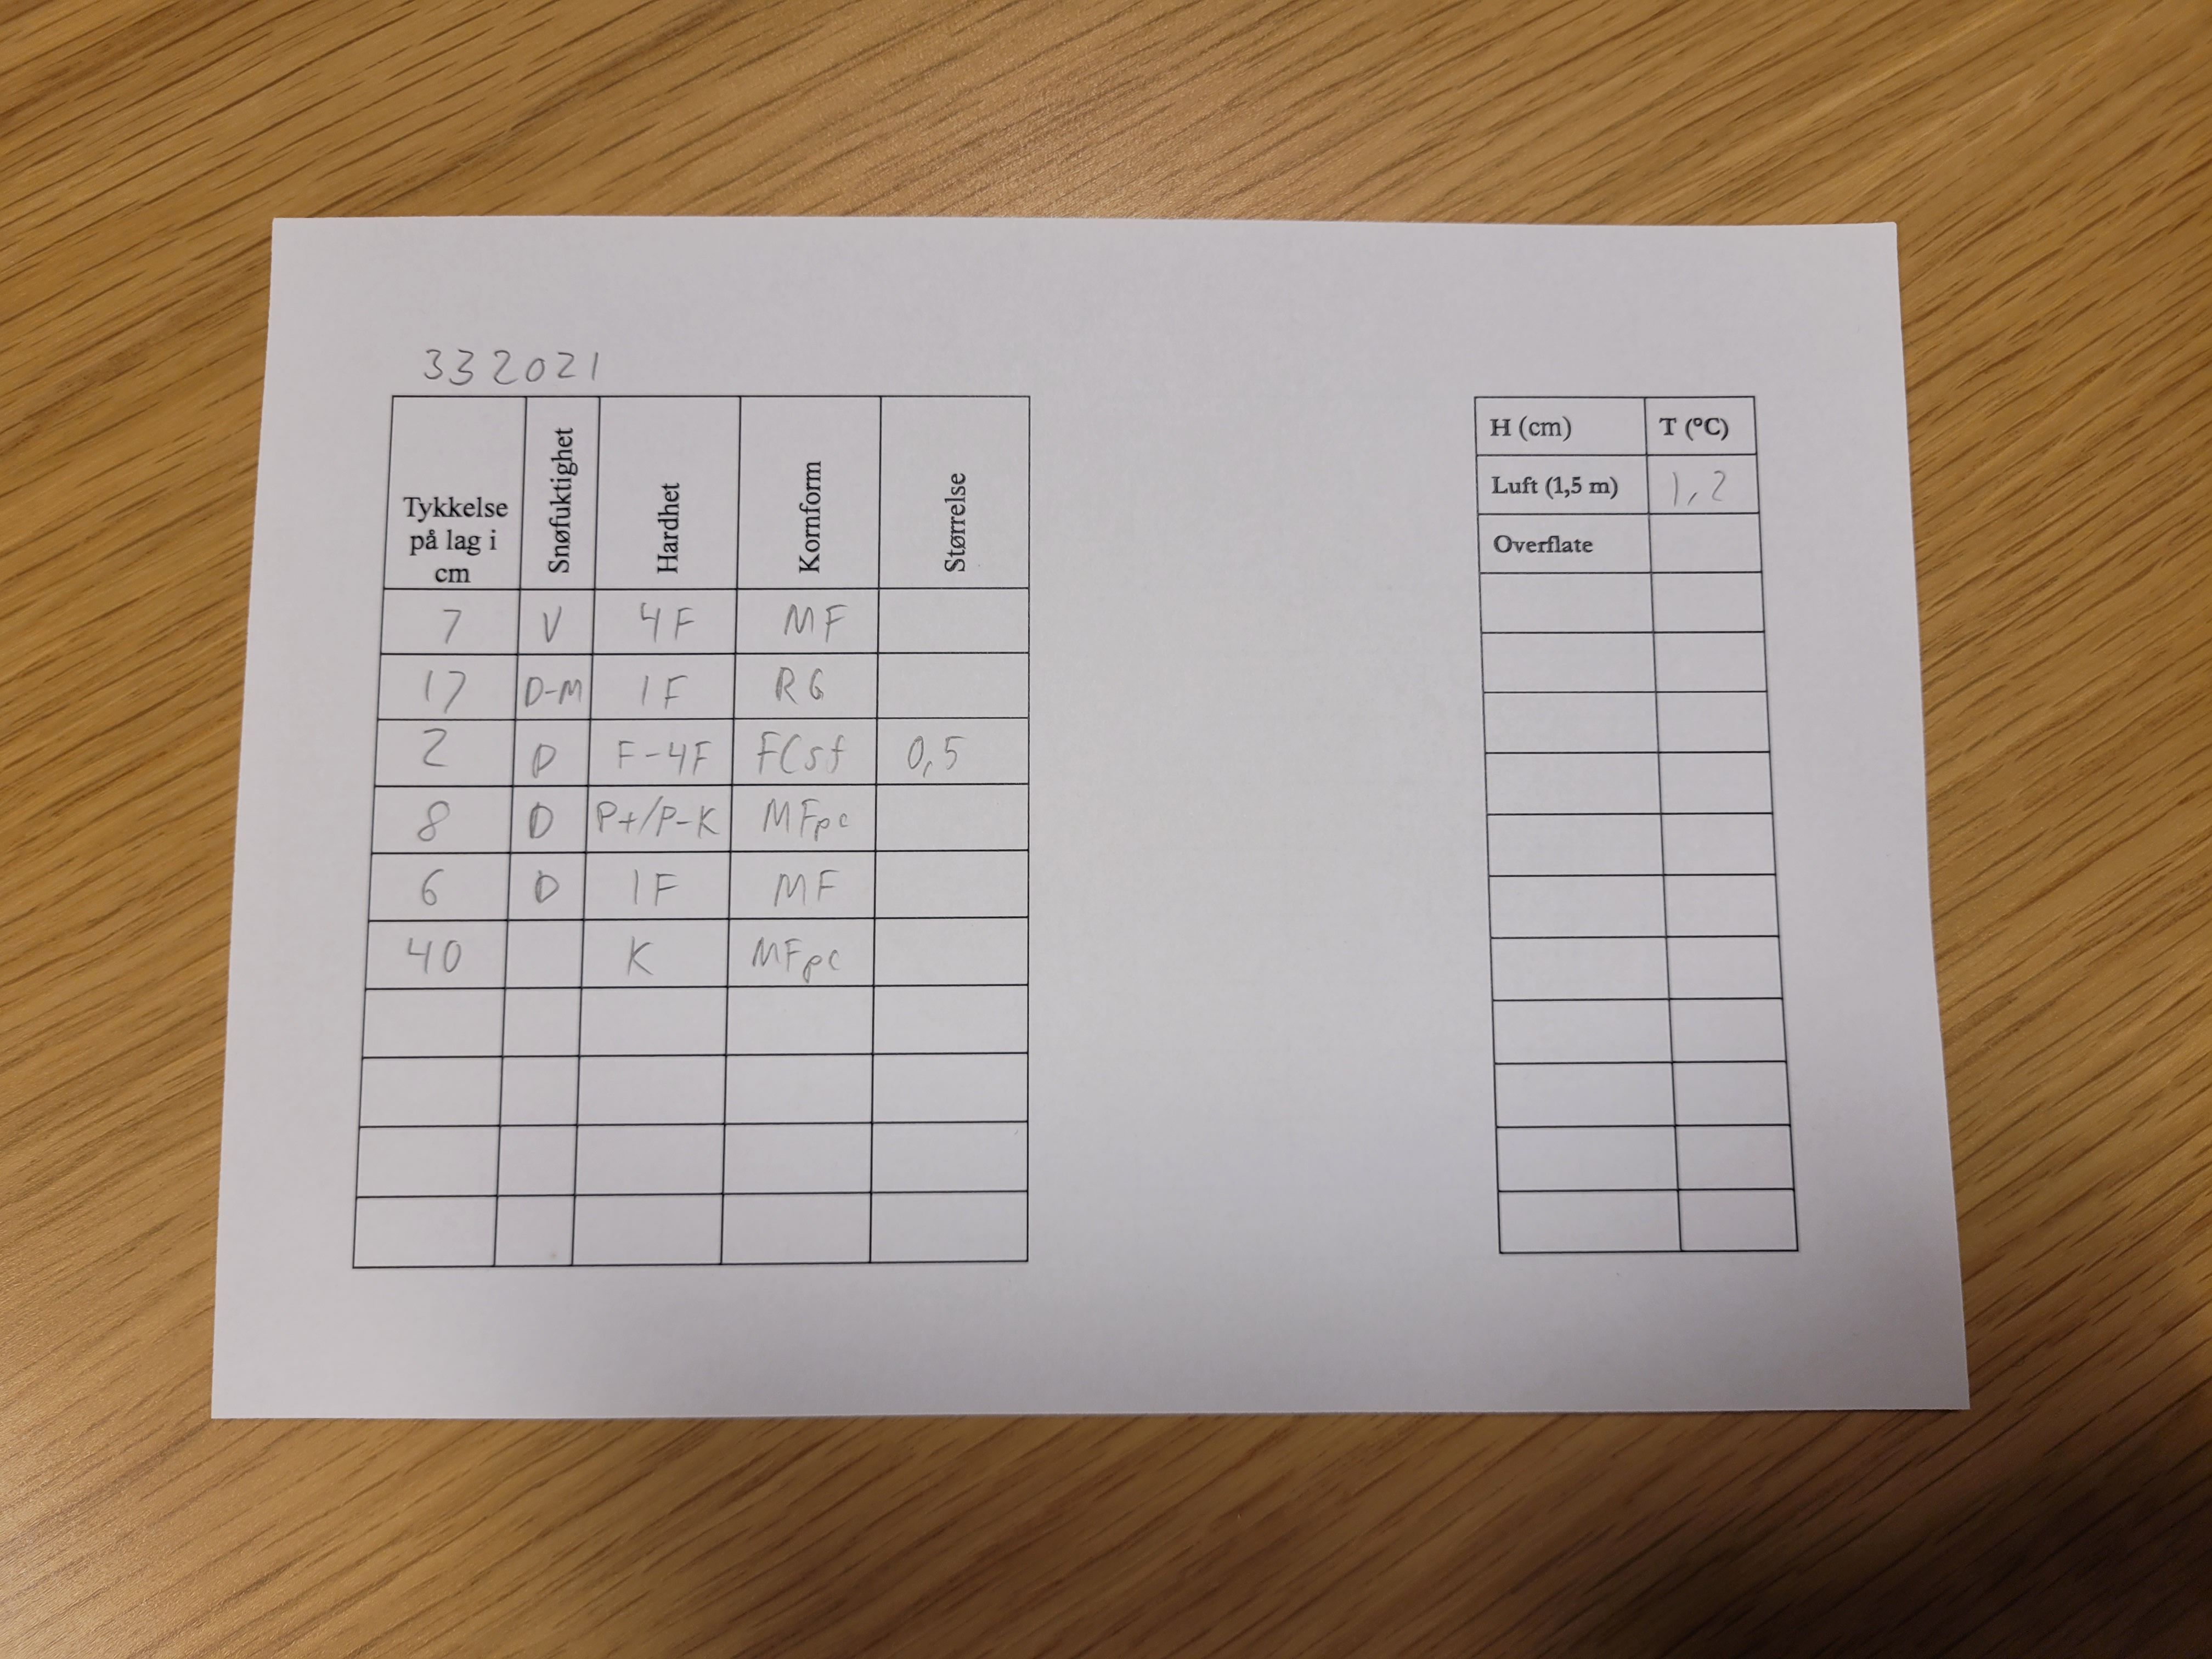 332021
Tykkelse på lag i cm Snøfuktighet Hardhet Kornform Størrelse
7 V 4F MF
17 D-M 1F RG
2 D F-4F FCsf 0,5
8 D P+/P-K MFpc
6 D 1F MF
40 K MFpc
H (cm) T (°C)
Luft (1,5 m) 1,2
Overflate